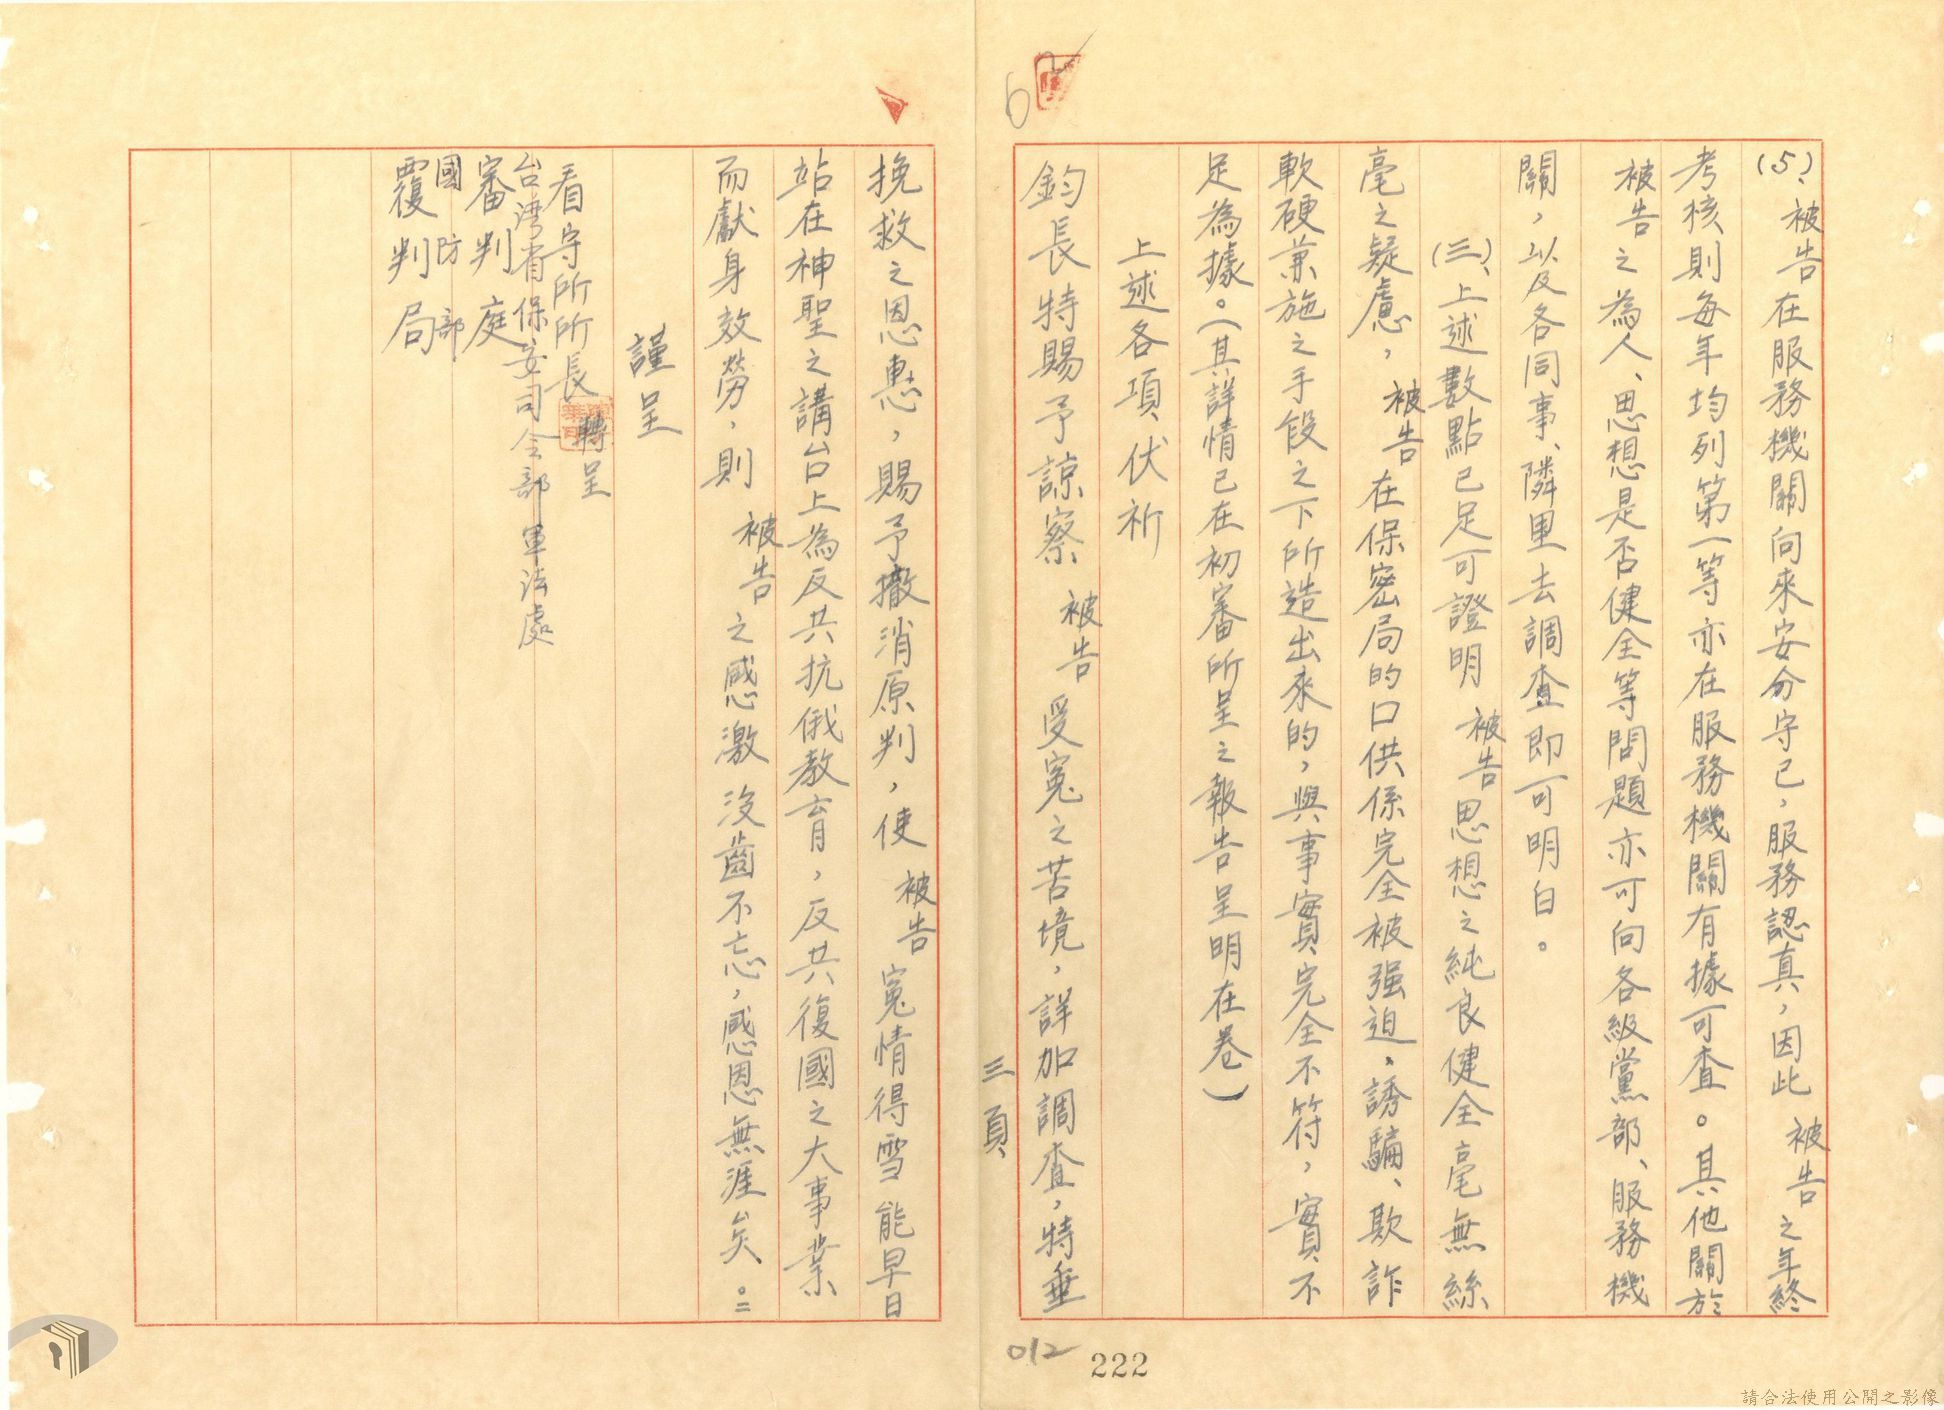 (5)、被告在服務機關向來安分守己，服務認真，因此 被告之年終
考核則每年均列第一等亦在服務機關有據可查。其他關於
被告之為人、思想是否健全等問題亦可向各級黨部、服務機
關，以及各同事、隣里去調查即可明白。
(三)、上述數點已足可證明 被告思想之純良健全毫無絲
毫之疑慮，被告在保密局的口供係完全被强迫、誘騙、欺詐
軟硬兼施之手段之下所造出來的，與事實完全不符，實不
足為據。(其詳情已在初審所呈之報告呈明在卷)
上述各項、伏祈
鈞長特賜予諒察 被告 受冤之苦境，詳加調查，特垂
三頁
挽救之恩惠，賜予撤消原判，使 被告 冤情得雪 能早日
站在神聖之講台上為反共抗俄教育，反共復國之大事業
而獻身效勞，則 被告之感激 沒齒不忘，感恩無涯矣。=
謹呈
看守所所長 轉呈
台灣省保安司令部軍法處
審判庭
國防部
覆判局
62
012
222
請合法使用公開之影像